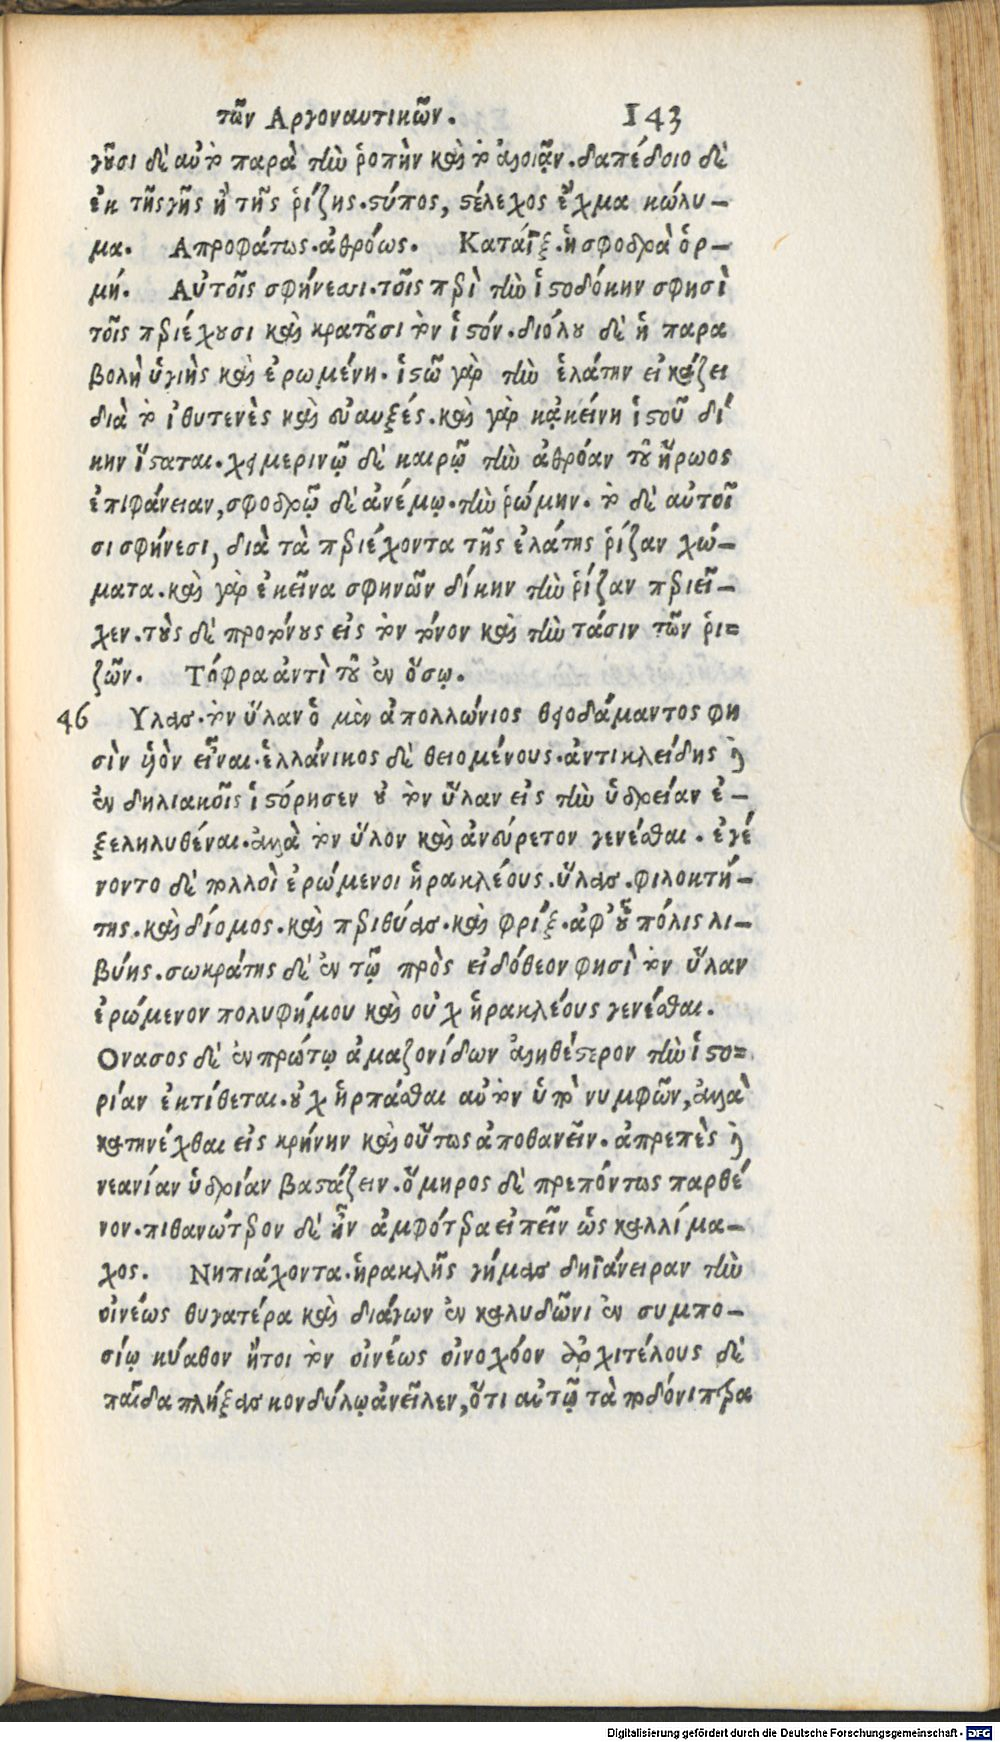 τῶν Αργοναυτικῶν. 143
γοῦσι δὲ αὐτὸ παρὰ τὴν ῥοπὴν καὶ τὸ ἀλοιᾷν. δαπέδοιο δὲ
ἐκ τῆς γῆς ἢ τῆς ῥίζης. στύπος, στέλεχος ἔχμα κώλυ-
μα. Απροφάτως. ἀθρόως. Κατάϊξ. ἡ σφοδρὰ ὁρ-
μή. Αὐτοῖς σφήνεσσι. τοῖς περὶ τὴν ἱστοδόκην σφησὶ
τοῖς περιέχουσι καὶ κρατοῦσι τὸν ἱστόν. διόλου δὲ ἡ παρα
βολὴ ὑγιὴς καὶ ἐρωμένη. ἱστῷ γὰρ τὴν ἐλάτην εἰκάζει
διὰ τὸ ἰθυτενὲς καὶ εὐαυξές. καὶ γὰρ κἀκείνη ἱστοῦ δί
κην ἵσταται. χειμερινῷ δὲ καιρῷ τὴν ἀθρόαν τοῦ ἥρωος
ἐπιφάνειαν, σφοδρῷ δὲ ἀνέμῳ. τὴν ῥώμην. τὸ δὲ αὐτοῖ
σι σφήνεσι, διὰ τὰ περιέχοντα τῆς ἐλάτης ῥίζαν χώ-
ματα. καὶ γὰρ ἐκεῖνα σφηνῶν δίκην τὴν ῥίζαν περιεῖ-
χεν. τοὺς δὲ προτόνους εἰς τὸν τόνον καὶ τὴν τάσιν τῶν ῥι-
ζῶν. Τόφρα ἀντὶ τοῦ ἐν ὅσῳ.
46 Υλας. τὸν ὕλαν ὁ μὲν ἀπολλώνιος θειοδάμαντος φη
σὶν υἱὸν εἶναι. ἑλλάνικος δὲ θειομένους. ἀντικλείδης δὲ
ἐν δηλιακοῖς ἱστόρησεν οὐ τὸν ὕλαν εἰς τὴν ὑδρείαν ἐ-
ξεληλυθέναι. ἀλλὰ τὸν ὕλον καὶ ἀνεύρετον γενέσθαι. ἐγέ
νοντο δὲ πολλοὶ ἐρώμενοι ἡρακλέους. ὕλας. φιλοκτή-
της. καὶ δίομος. καὶ περιθύας. καὶ φρίξ. ἀφ' οὗ πόλις λι-
βύης. σωκράτης δὲ ἐν τῷ πρὸς εἰδόθεον φησὶ τὸν ὕλαν
ἐρώμενον πολυφήμου καὶ οὐχ ἡρακλέους γενέσθαι.
Ονασος δὲ ἐν πρώτῳ ἀμαζονίδων ἀληθέστερον τὴν ἱστο-
ρίαν ἐκτίθεται. οὐχ ἡρπάσθαι αὐτὸν ὑπὸ νυμφῶν, ἀλλὰ
κατηνέχθαι εἰς κρήνην καὶ οὕτως ἀποθανεῖν. ἀπρεπὲς δὲ
νεανίαν ὑδρίαν βαστάζειν. ὅμηρος δὲ πρεπόντως παρθέ
νον. πιθανώτερον δὲ ἦν ἀμφότερα εἰπεῖν ὡς καλλίμα-
χος. Νηπιάχοντα. ἡρακλῆς γήμας δηϊάνειραν τὴν
οἰνέως θυγατέρα καὶ διάγων ἐν καλυδῶνι ἐν συμπο-
σίῳ κύαθον ἤτοι τὸν οἰνέως οἰνοχόον ἀρχιτέλους δὲ
παῖδα πλήξας κονδύλῳ ἀνεῖλεν, ὅτι αὐτῷ τὰ ποδόνιπτρα
Digitalisierung gefördert durch die Deutsche Forschungsgemeinschaft - DFG